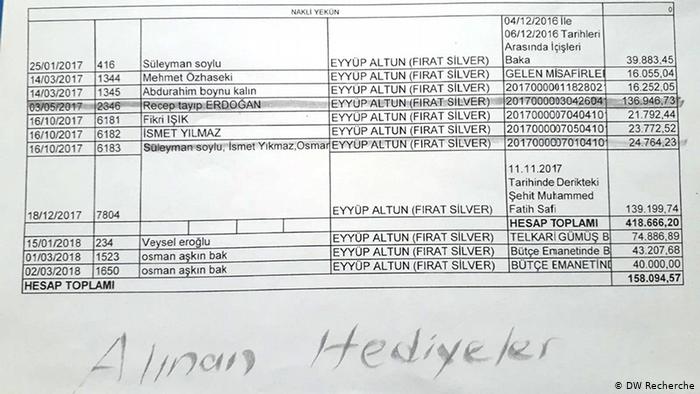 NAKLİ YEKÜN 0
04/12/2016 İle
06/12/2016 Tarihleri
Arasında İçişleri
25/01/2017 416 Süleyman soylu EYYÜP ALTUN (FIRAT SİLVER) Baka 39.883,45
14/03/2017 1344 Mehmet Özhaseki EYYÜP ALTUN (FIRAT SİLVER) GELEN MİSAFİRLE 16.055,04
14/03/2017 1345 Abdurahim boynu kalın EYYÜP ALTUN (FIRAT SİLVER) 2017000001182802 16.252,05
03/05/2017 2346 Recep tayıp ERDOĞAN EYYÜP ALTUN (FIRAT SİLVER) 2017000003042604 136.946,73
16/10/2017 6181 Fikri IŞIK EYYÜP ALTUN (FIRAT SİLVER) 2017000007040410 21.792,44
16/10/2017 6182 İSMET YILMAZ EYYÜP ALTUN (FIRAT SİLVER) 2017000007050410 23.772,52
16/10/2017 6183 Süleyman soylu, İsmet Yıkmaz,Osmar EYYÜP ALTUN (FIRAT SİLVER) 2017000007010410 24.764,23
11.11.2017
Tarihinde Derikteki
Şehit Muhammed
18/12/2017 7804 EYYÜP ALTUN (FIRAT SİLVER) Fatih Safi 139.199,74
HESAP TOPLAMI 418.666,20
15/01/2018 234 Veysel eroğlu EYYÜP ALTUN (FIRAT SİLVER) TELKARİ GÜMÜŞ B 74.886,89
01/03/2018 1523 osman aşkın bak EYYÜP ALTUN (FIRAT SİLVER) Bütçe Emanetinde B 43.207,68
02/03/2018 1650 osman aşkın bak EYYÜP ALTUN (FIRAT SİLVER) BÜTÇE EMANETİND 40.000,00
HESAP TOPLAMI 158.094,57
Alınan Hediyeler
© DW Recherche